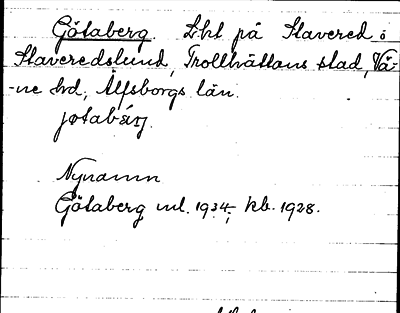 Götaberg. Lht på Stavered o
Staveredslund, Trollhättans stad, Vä-
-ne hd, Älfsborgs län.
jøtabärj.
Nynamn
Götaberg ml. 1934; kb. 1928.